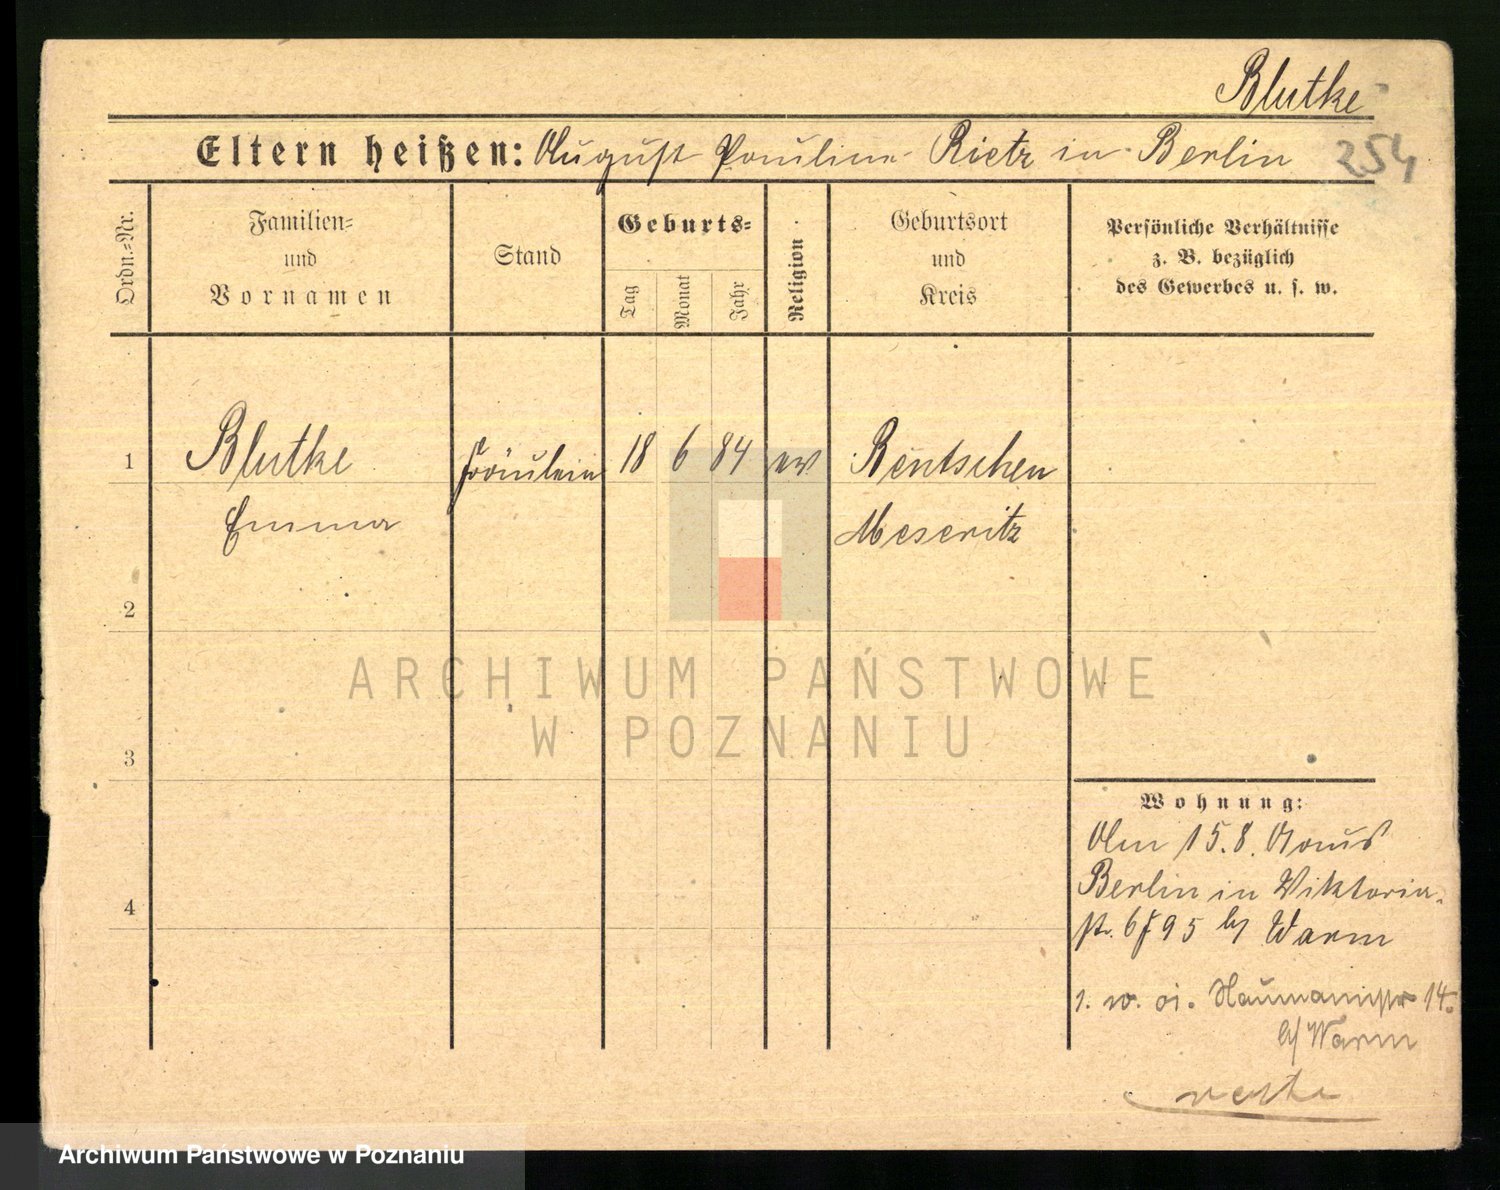 Blutke
Eltern heißen: August Pauline Rietz in Berlin 254
Ordn.=Nr.
Familien=
und
Vornamen
Stand
Geburts=
Tag
Monat
Jahr
Religion
Geburtsort
und
Kreis
Persönliche Verhältnisse
z. B. bezüglich
des Gewerbes u. s. w.
1 Blutke Fräulein 18 6 84 ev Bentschen
Emma Meseritz
2
3
4
ARCHIWUM PAŃSTWOWE
W POZNANIU
Wohnung:
Am 15.8. aus
Berlin in Viktoria-
str. 95 b/ Warm
Naumannstr 14.
b/ Warm
Archiwum Państwowe w Poznaniu